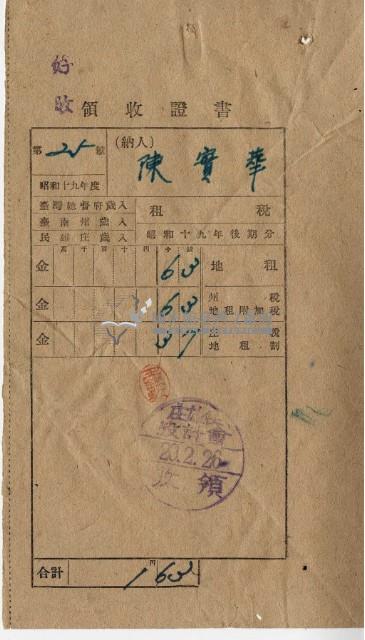 好
收
領收證書
第 25 號
(納人)
陳實華
昭和十九年度
臺灣總督府歲入
臺南州歲入
民雄庄歲入
租稅
昭和十九年後期分
金 63 地租
金 63 州稅 地租附加稅
金 37 庄稅 地租割
會計役
20.2.26
領收
合計 1円63